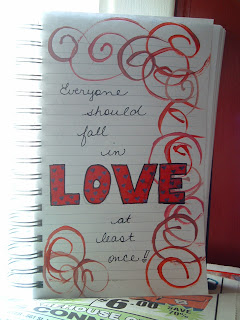 Everyone
should
fall
in
LOVE
at
least
once!!
6.00
SAVE
CONN